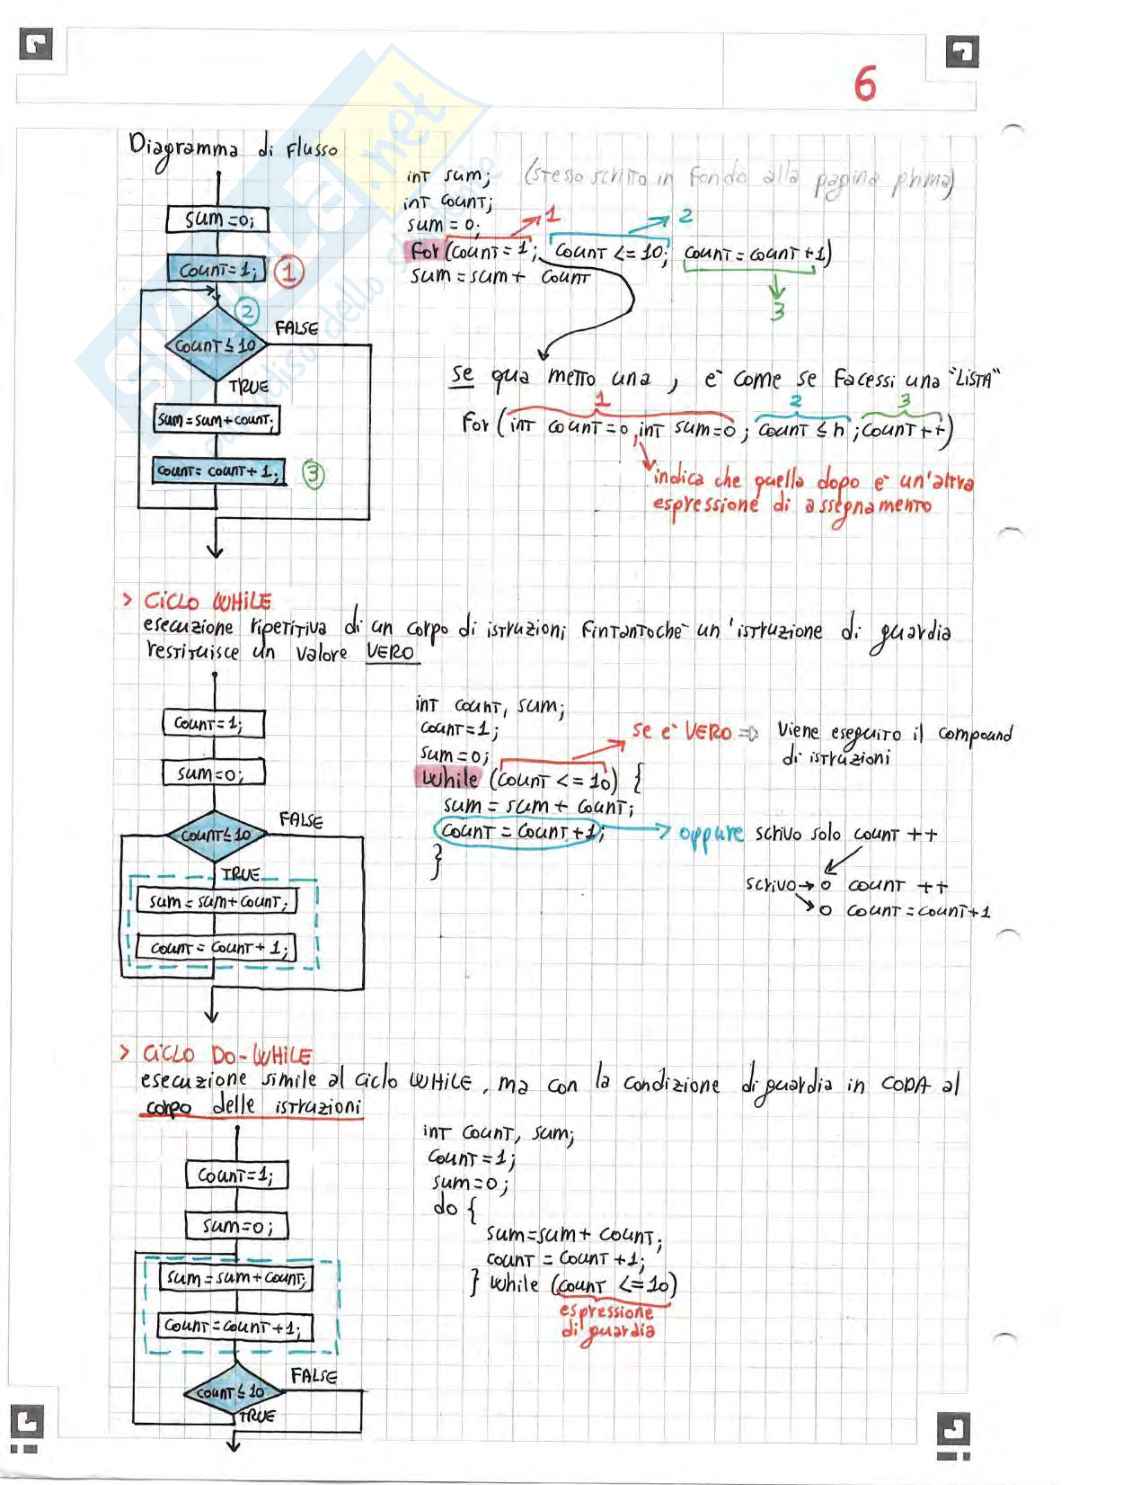 6
Diagramma di flusso
sum=0;
count=1; 1
2
count ≤ 10
FALSE
TRUE
sum=sum+count;
count=count+1; 3
int sum; (stesso scritto in fondo alla pagina prima)
int count;
sum=0; 1 2
for (count=1; count <=10; count=count+1)
sum=sum+ count
3
se qua metto una , è come se facessi una "LISTA"
1 2 3
for (int count=0, int sum=0; count ≤ n; count++)
indica che quella dopo è un'altra
espressione di assegnamento
> CICLO WHILE
esecuzione ripetitiva di un corpo di istruzioni fintantoche un'istruzione di guardia
restituisce un valore VERO
count=1;
sum=0;
count≤10
FALSE
TRUE
sum=sum+count;
count=count+1;
int count, sum;
count=1;
sum=0;
while (count <=10) {
sum=sum+count;
count=count+1;
}
se è VERO ⇒ Viene eseguito il compound
di istruzioni
oppure scrivo solo count ++
scrivo → o count ++
o count=count+1
> CICLO DO-WHILE
esecuzione simile al ciclo WHILE, ma con la condizione di guardia in CODA al
corpo delle istruzioni
count=1;
sum=0;
sum=sum+count;
count=count+1;
count≤10
FALSE
TRUE
int count, sum;
count=1;
sum=0;
do {
sum=sum+ count;
count=count+1;
} while (count <=10)
espressione
di guardia